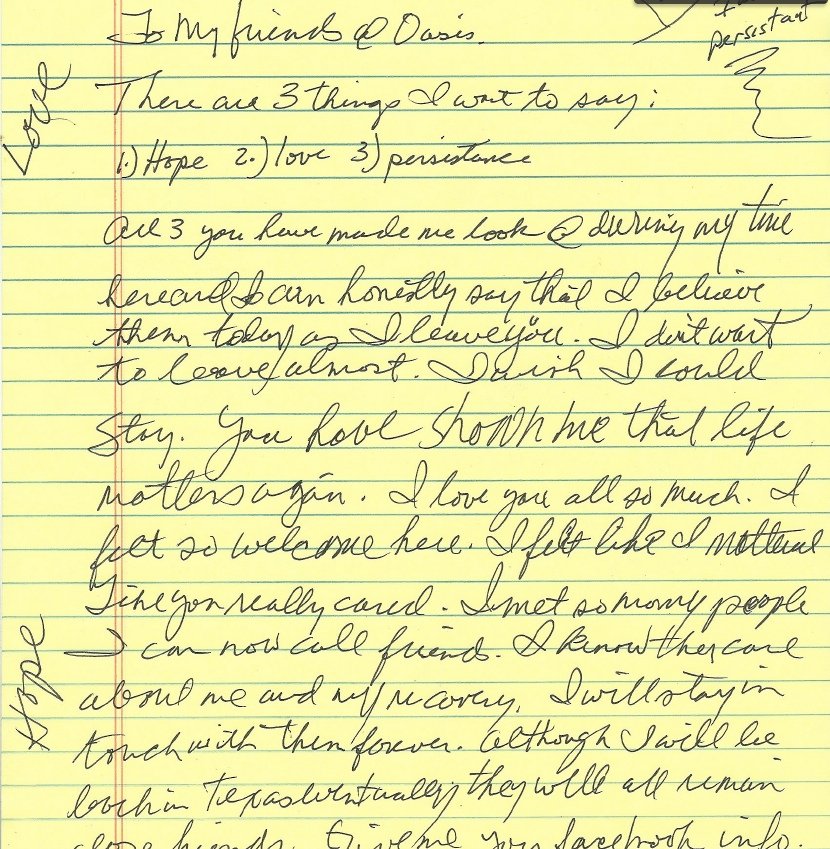 To My friends @ Oasis.
persistant
Love
There are 3 things I want to say:
1.) Hope 2.) love 3) persistance
All 3 you have made me look @ during my time
here and I can honestly say that I believe
them today as I leave you. I don't want
to leave, almost. I wish I could
stay. You have shown me that life
matters again. I love you all so much. I
felt so welcome here. I felt like I mattered
Like you really cared. I met so many people
Hope
I can now call friend. I know they care
about me and my recovery. I will stay in
touch with them forever. Although I will be
back in Texas eventually, they will all remain
close friends. Give me your facebook info.